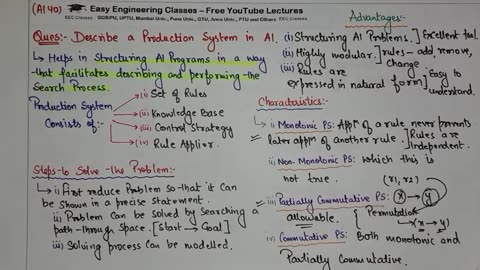 (AI 40)
Easy Engineering Classes – Free YouTube Lectures
EEC Classes GGSIPU, UPTU, Mumbai Univ., Pune Univ., GTU, Anna Univ., PTU and Others EEC Classes
Ques:- Describe a Production System in AI.
↳ Helps in Structuring AI Programs in a way
that facilitates describing and performing the
Search Process.
Production System
Consists of:-
(i) Set of Rules
(ii) Knowledge Base
(iii) Control Strategy
(iv) Rule Applier.
Steps to Solve the Problem:-
↳ i) First reduce Problem so that it can
be shown in a precise statement.
ii) Problem can be solved by Searching a
path through Space. [Start → Goal]
iii) Solving process can be modelled.
Advantages:-
(i) Structuring AI Problems. ] Excellent tool.
(ii) Highly modular. ] rules – add, remove,
change
(iii) Rules are
expressed in natural form ] Easy to
understand.
Characteristics:-
↳ i) Monotonic PS: Appn of a rule never prevents
later appn of another rule. ] Rules are
independent.
ii) Non-Monotonic PS: which this is
not true. (r1, r2)
iii) Partially Commutative PS: x → y
allowable. { Permutation
(x → y)
iv) Commutative PS: Both monotonic and
Partially Commutative.